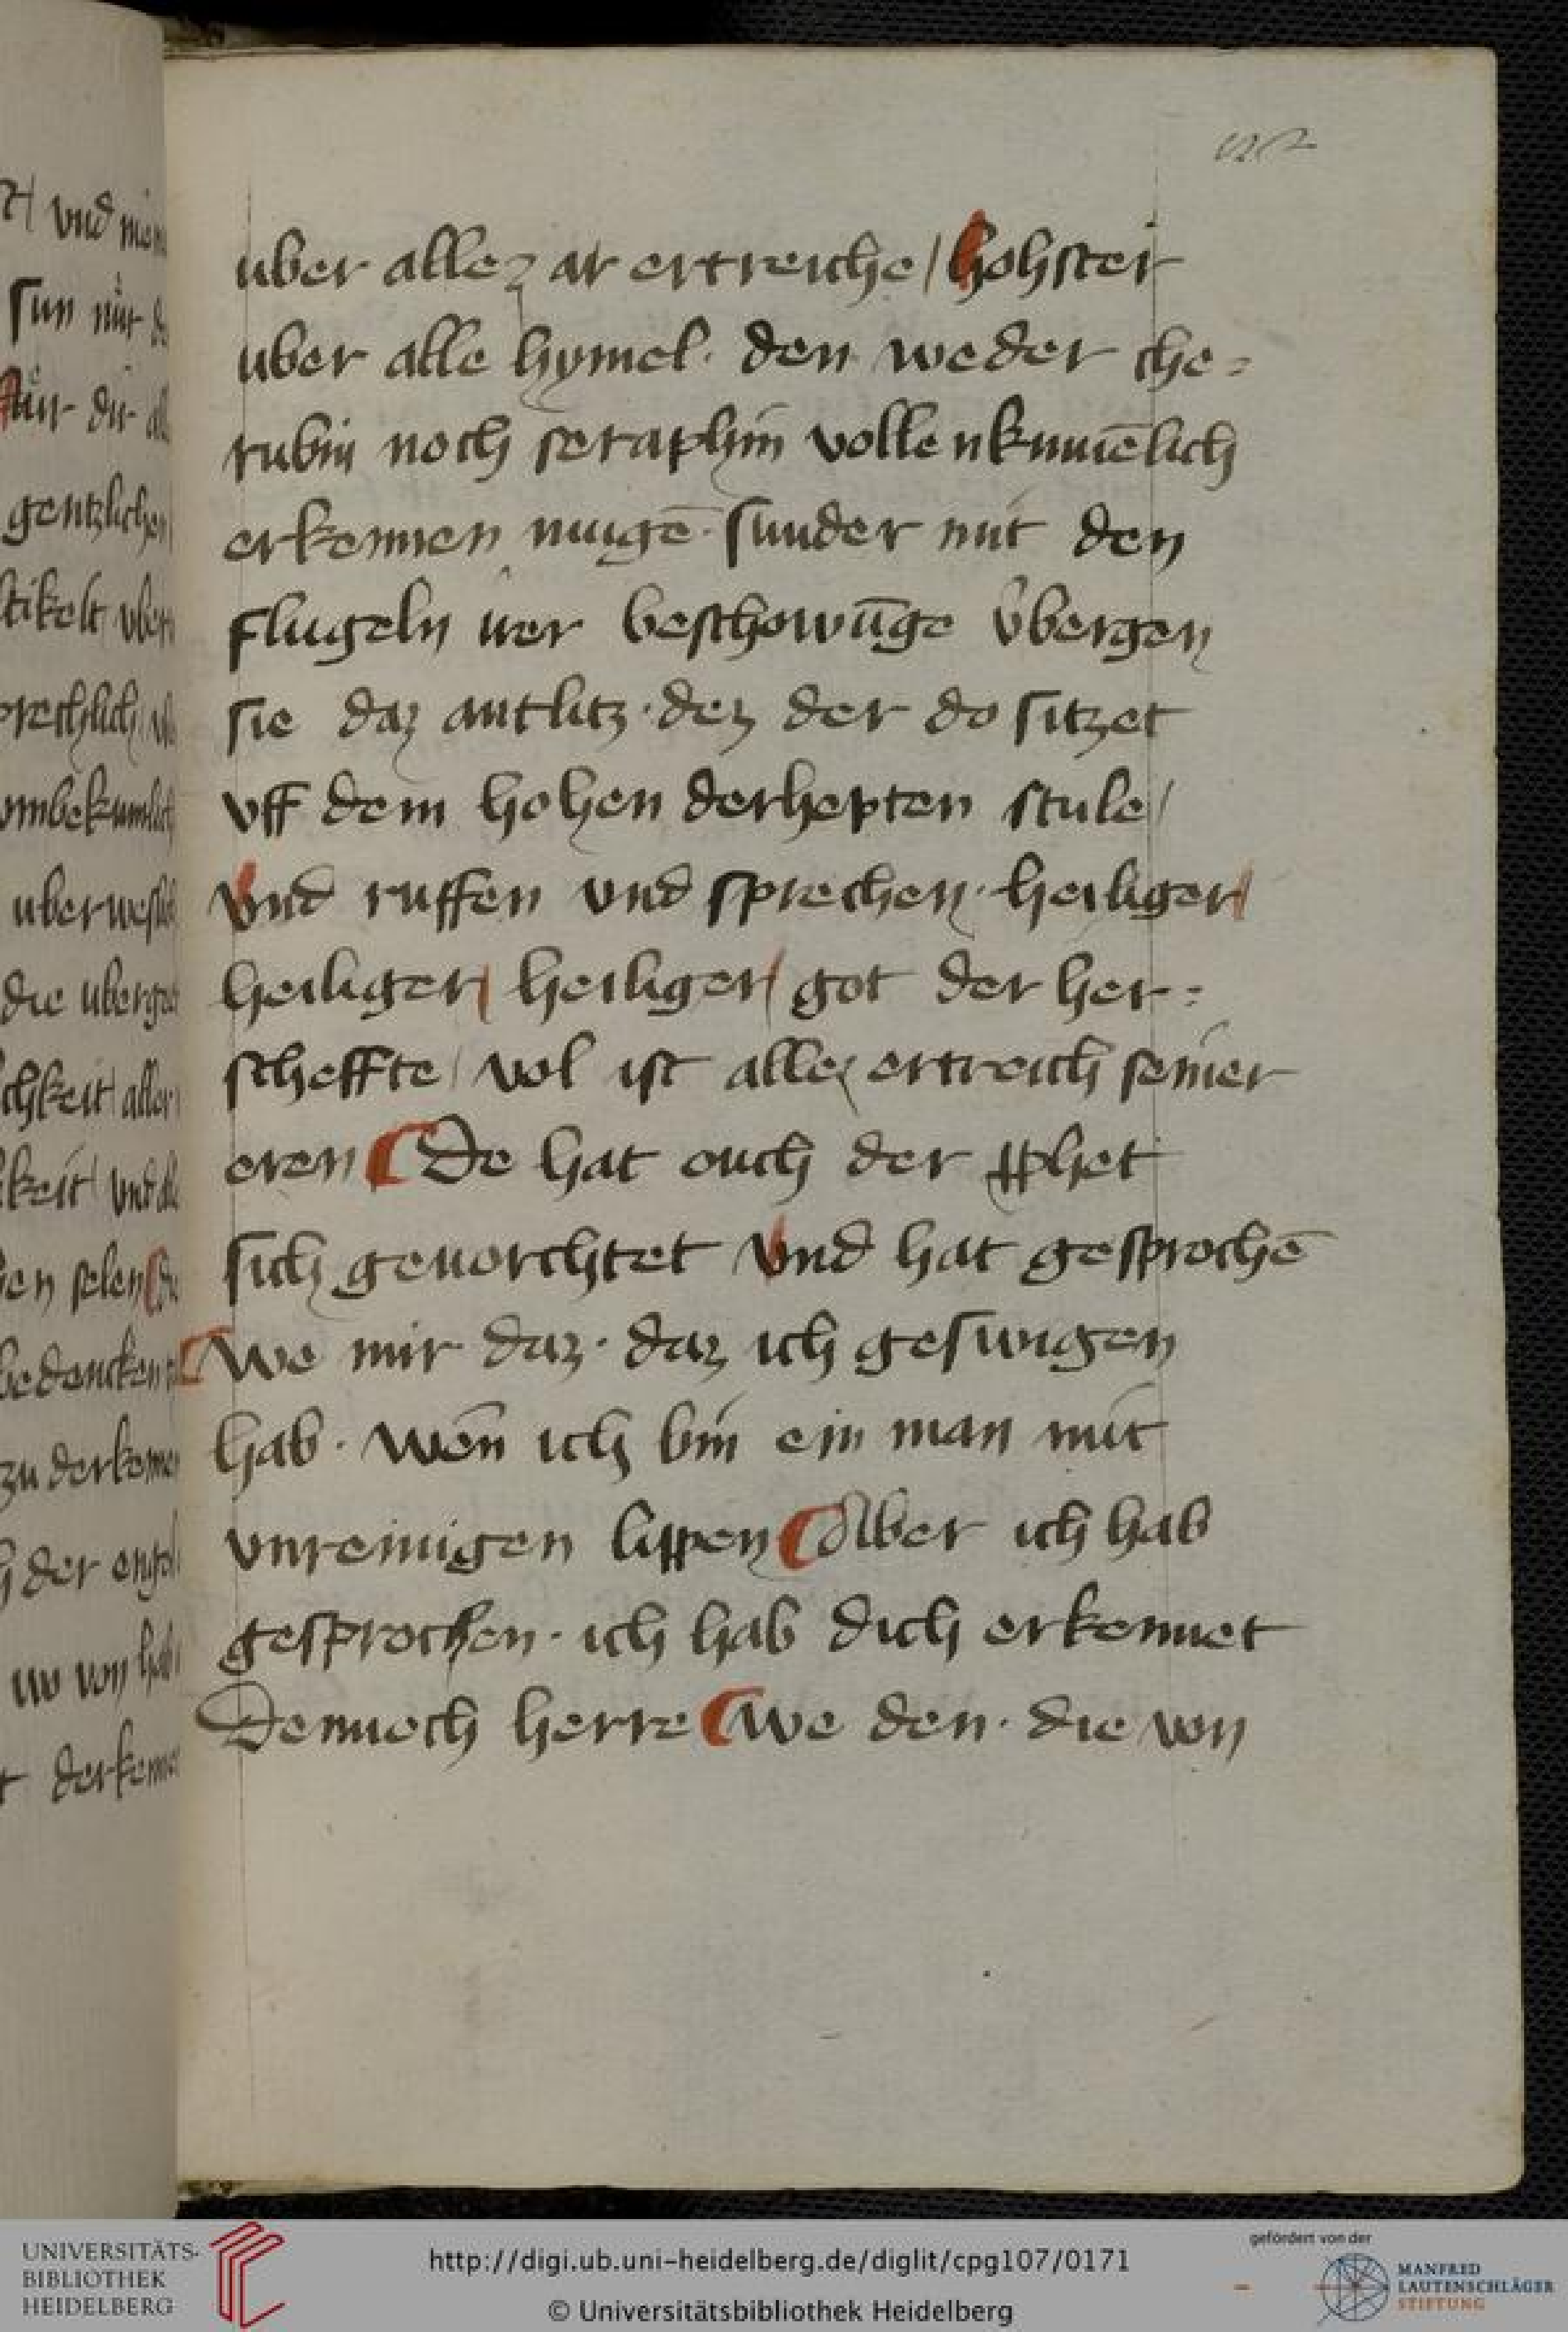 uber allez ar ertreiche / hohster
uber alle hymel · den weder che=
rubin noch seraphin vollenkumēlich
erkennen mugē · sunder mit den
flugeln irer beschowūge vbergen
sie daz antlitz · dez der do sitzet
vff dem hohen derhepten stule /
vnd ruffen vnd sprechen · heiliger /
heiliger / heiliger / got der her=
scheffte / vol ist allez ertreich seiner
eren De hat ouch der ꝓphet
sich geuorchtet vnd hat gesprochē
We mir daz · daz ich geswigen
hab · wen̄ ich bin ein man mit
vnreinigen lippen Aber ich hab
gesprochen · ich hab dich erkennet
Dennoch herre We den · die von
UNIVERSITÄTS-
BIBLIOTHEK
HEIDELBERG
http://digi.ub.uni-heidelberg.de/diglit/cpg107/0171
© Universitätsbibliothek Heidelberg
gefördert von der
MANFRED
LAUTENSCHLÄGER
STIFTUNG